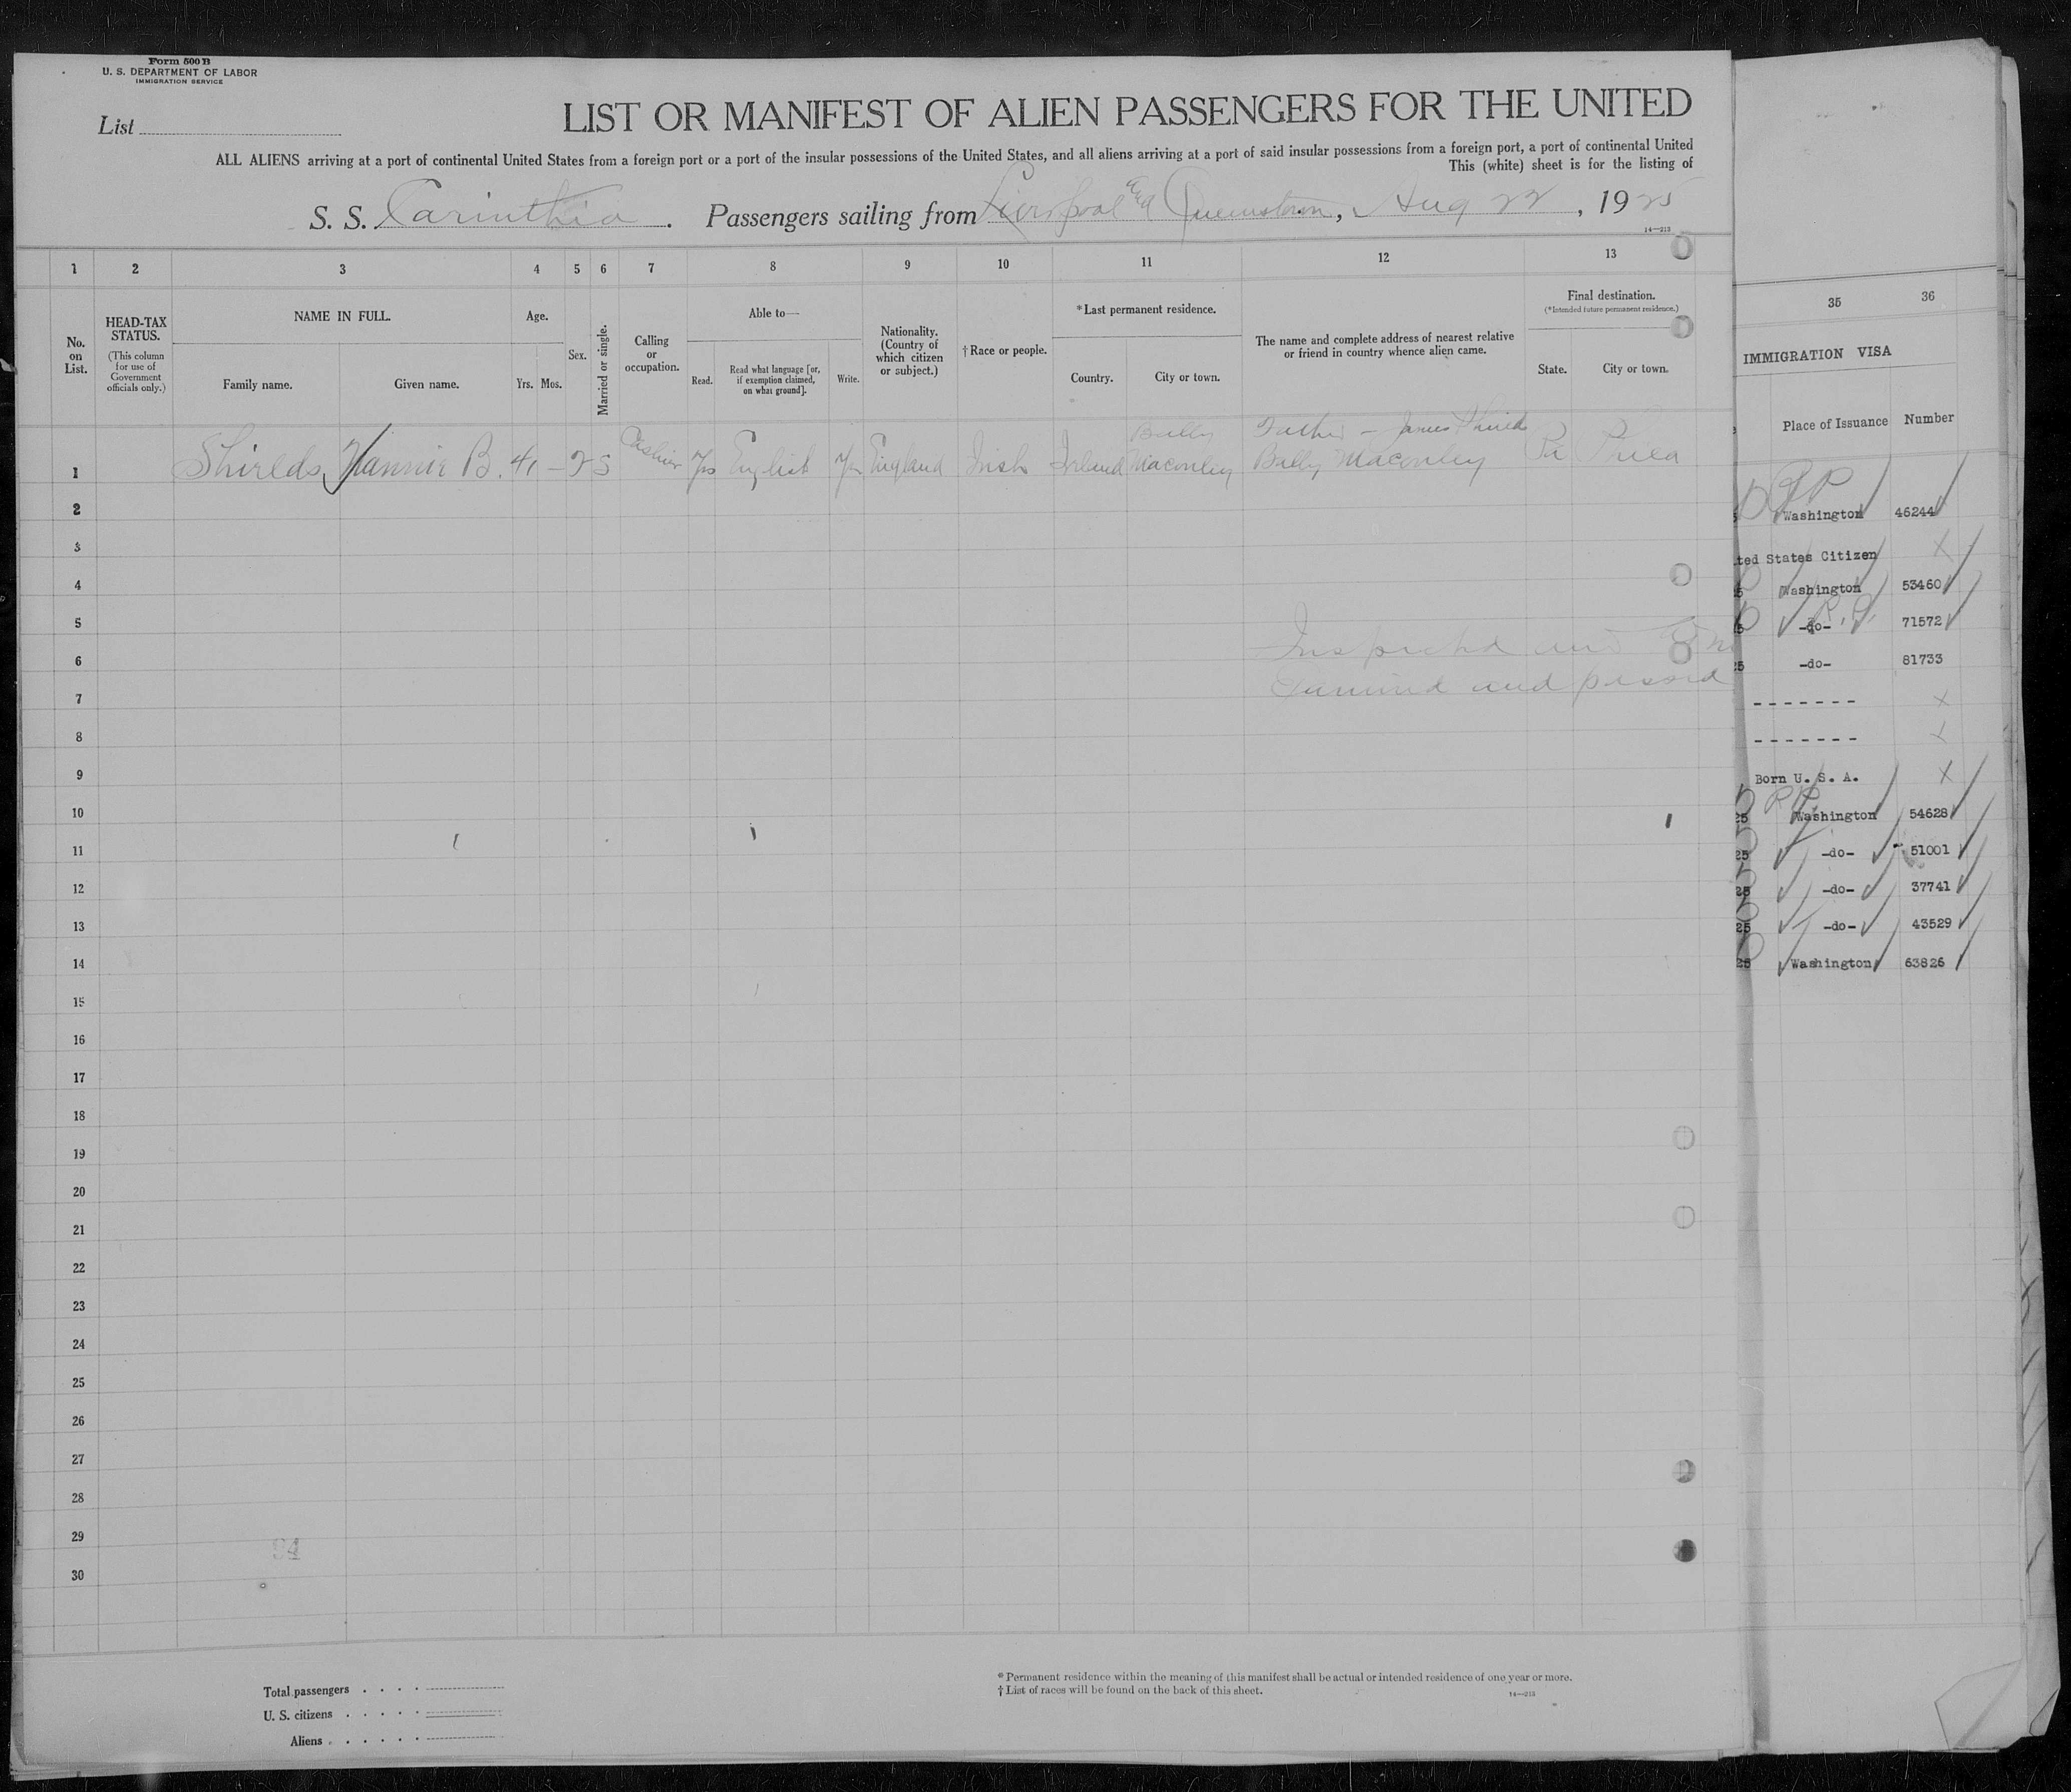 Form 500 B
U. S. DEPARTMENT OF LABOR
IMMIGRATION SERVICE
List
LIST OR MANIFEST OF ALIEN PASSENGERS FOR THE UNITED
ALL ALIENS arriving at a port of continental United States from a foreign port or a port of the insular possessions of the United States, and all aliens arriving at a port of said insular possessions from a foreign port, a port of continental United
This (white) sheet is for the listing of
S. S. Carinthia. Passengers sailing from Liverpool and Queenstown, Aug 22, 1925
14—213
1 2 3 4 5 6 7 8 9 10 11 12 13
No. on List.
HEAD-TAX STATUS.
(This column for use of Government officials only.)
NAME IN FULL.
Family name. Given name.
Age.
Yrs. Mos.
Sex.
Married or single.
Calling or occupation.
Able to—
Read. Read what language [or, if exemption claimed, on what ground]. Write.
Nationality. (Country of which citizen or subject.)
†Race or people.
*Last permanent residence.
Country. City or town.
The name and complete address of nearest relative or friend in country whence alien came.
Final destination.
(*Intended future permanent residence.)
State. City or town.
35 36
IMMIGRATION VISA
Place of Issuance Number
1 Shields Nannie B. 41 – S Cashier Yes English Yes England Irish Ireland Bally Maconley Father – James Shields Bally Maconley Pa Phila
2
3
4
5
6
7
8
9
10
11
12
13
14
15
16
17
18
19
20
21
22
23
24
25
26
27
28
29
30
Inspected and
and passed
Washington 46244
ted States Citizen
Washington 53460
-do- R.P. 71572
-do- 81733
-------
-------
Born U. S. A.
25 Washington 54628
25 -do- 51001
25 -do- 37741
25 -do- 43529
25 Washington 63826
94
Total passengers
U. S. citizens
Aliens
*Permanent residence within the meaning of this manifest shall be actual or intended residence of one year or more.
†List of races will be found on the back of this sheet.
14—213